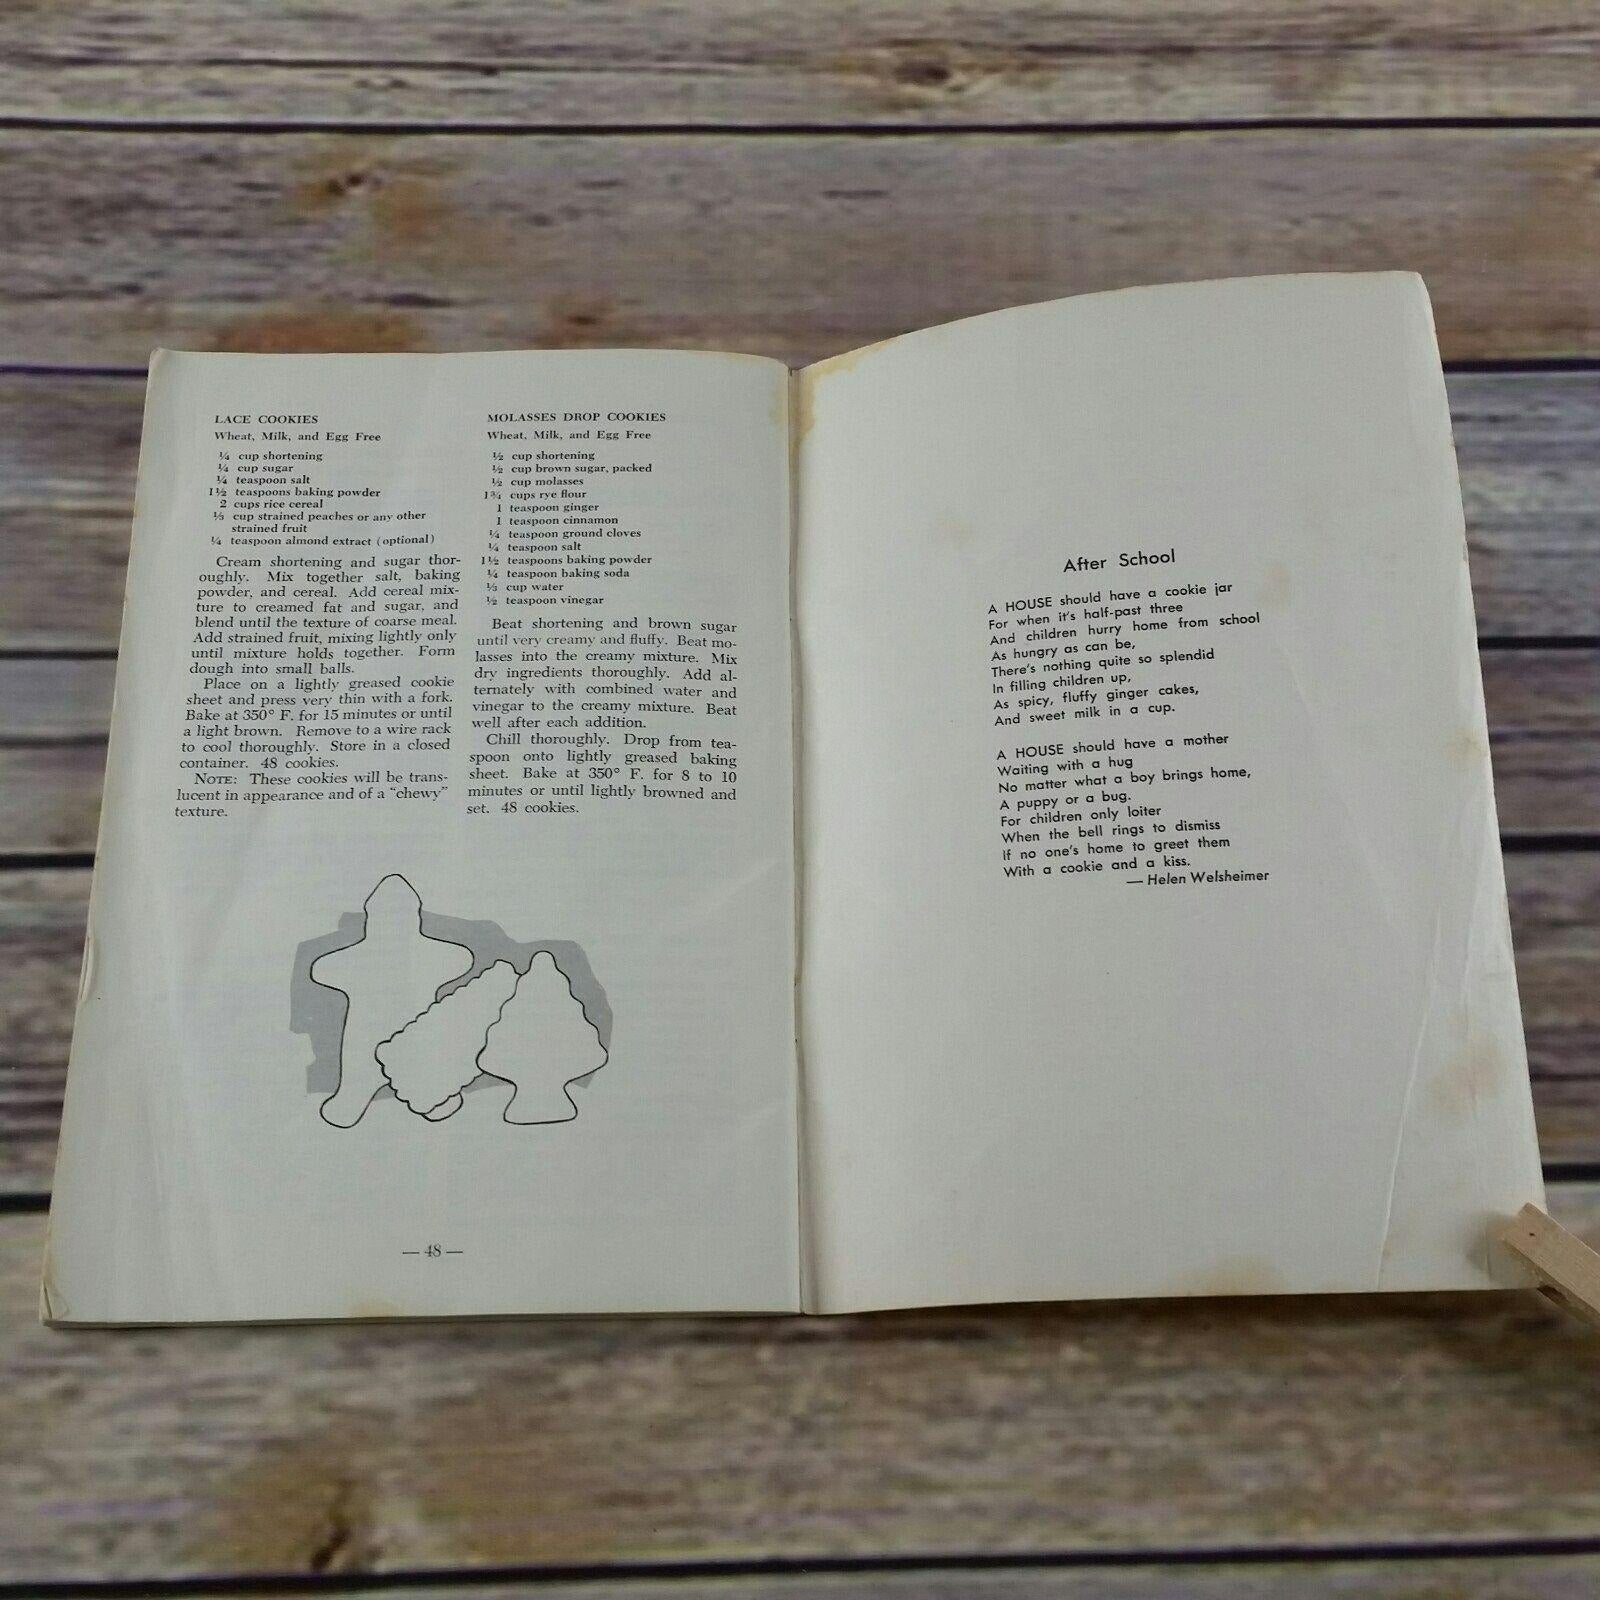 LACE COOKIES
Wheat, Milk, and Egg Free
¼ cup shortening
¼ cup sugar
¼ teaspoon salt
1½ teaspoons baking powder
2 cups rice cereal
⅓ cup strained peaches or any other
strained fruit
¼ teaspoon almond extract (optional)
Cream shortening and sugar thor-
oughly. Mix together salt, baking
powder, and cereal. Add cereal mix-
ture to creamed fat and sugar, and
blend until the texture of coarse meal.
Add strained fruit, mixing lightly only
until mixture holds together. Form
dough into small balls.
Place on a lightly greased cookie
sheet and press very thin with a fork.
Bake at 350° F. for 15 minutes or until
a light brown. Remove to a wire rack
to cool thoroughly. Store in a closed
container. 48 cookies.
NOTE: These cookies will be trans-
lucent in appearance and of a "chewy"
texture.
MOLASSES DROP COOKIES
Wheat, Milk, and Egg Free
½ cup shortening
½ cup brown sugar, packed
½ cup molasses
1¾ cups rye flour
1 teaspoon ginger
1 teaspoon cinnamon
¼ teaspoon ground cloves
¼ teaspoon salt
1½ teaspoons baking powder
¼ teaspoon baking soda
⅓ cup water
½ teaspoon vinegar
Beat shortening and brown sugar
until very creamy and fluffy. Beat mo-
lasses into the creamy mixture. Mix
dry ingredients thoroughly. Add al-
ternately with combined water and
vinegar to the creamy mixture. Beat
well after each addition.
Chill thoroughly. Drop from tea-
spoon onto lightly greased baking
sheet. Bake at 350° F. for 8 to 10
minutes or until lightly browned and
set. 48 cookies.
— 48 —
After School
A HOUSE should have a cookie jar
For when it's half-past three
And children hurry home from school
As hungry as can be,
There's nothing quite so splendid
In filling children up,
As spicy, fluffy ginger cakes,
And sweet milk in a cup.
A HOUSE should have a mother
Waiting with a hug
No matter what a boy brings home,
A puppy or a bug.
For children only loiter
When the bell rings to dismiss
If no one's home to greet them
With a cookie and a kiss.
— Helen Welsheimer